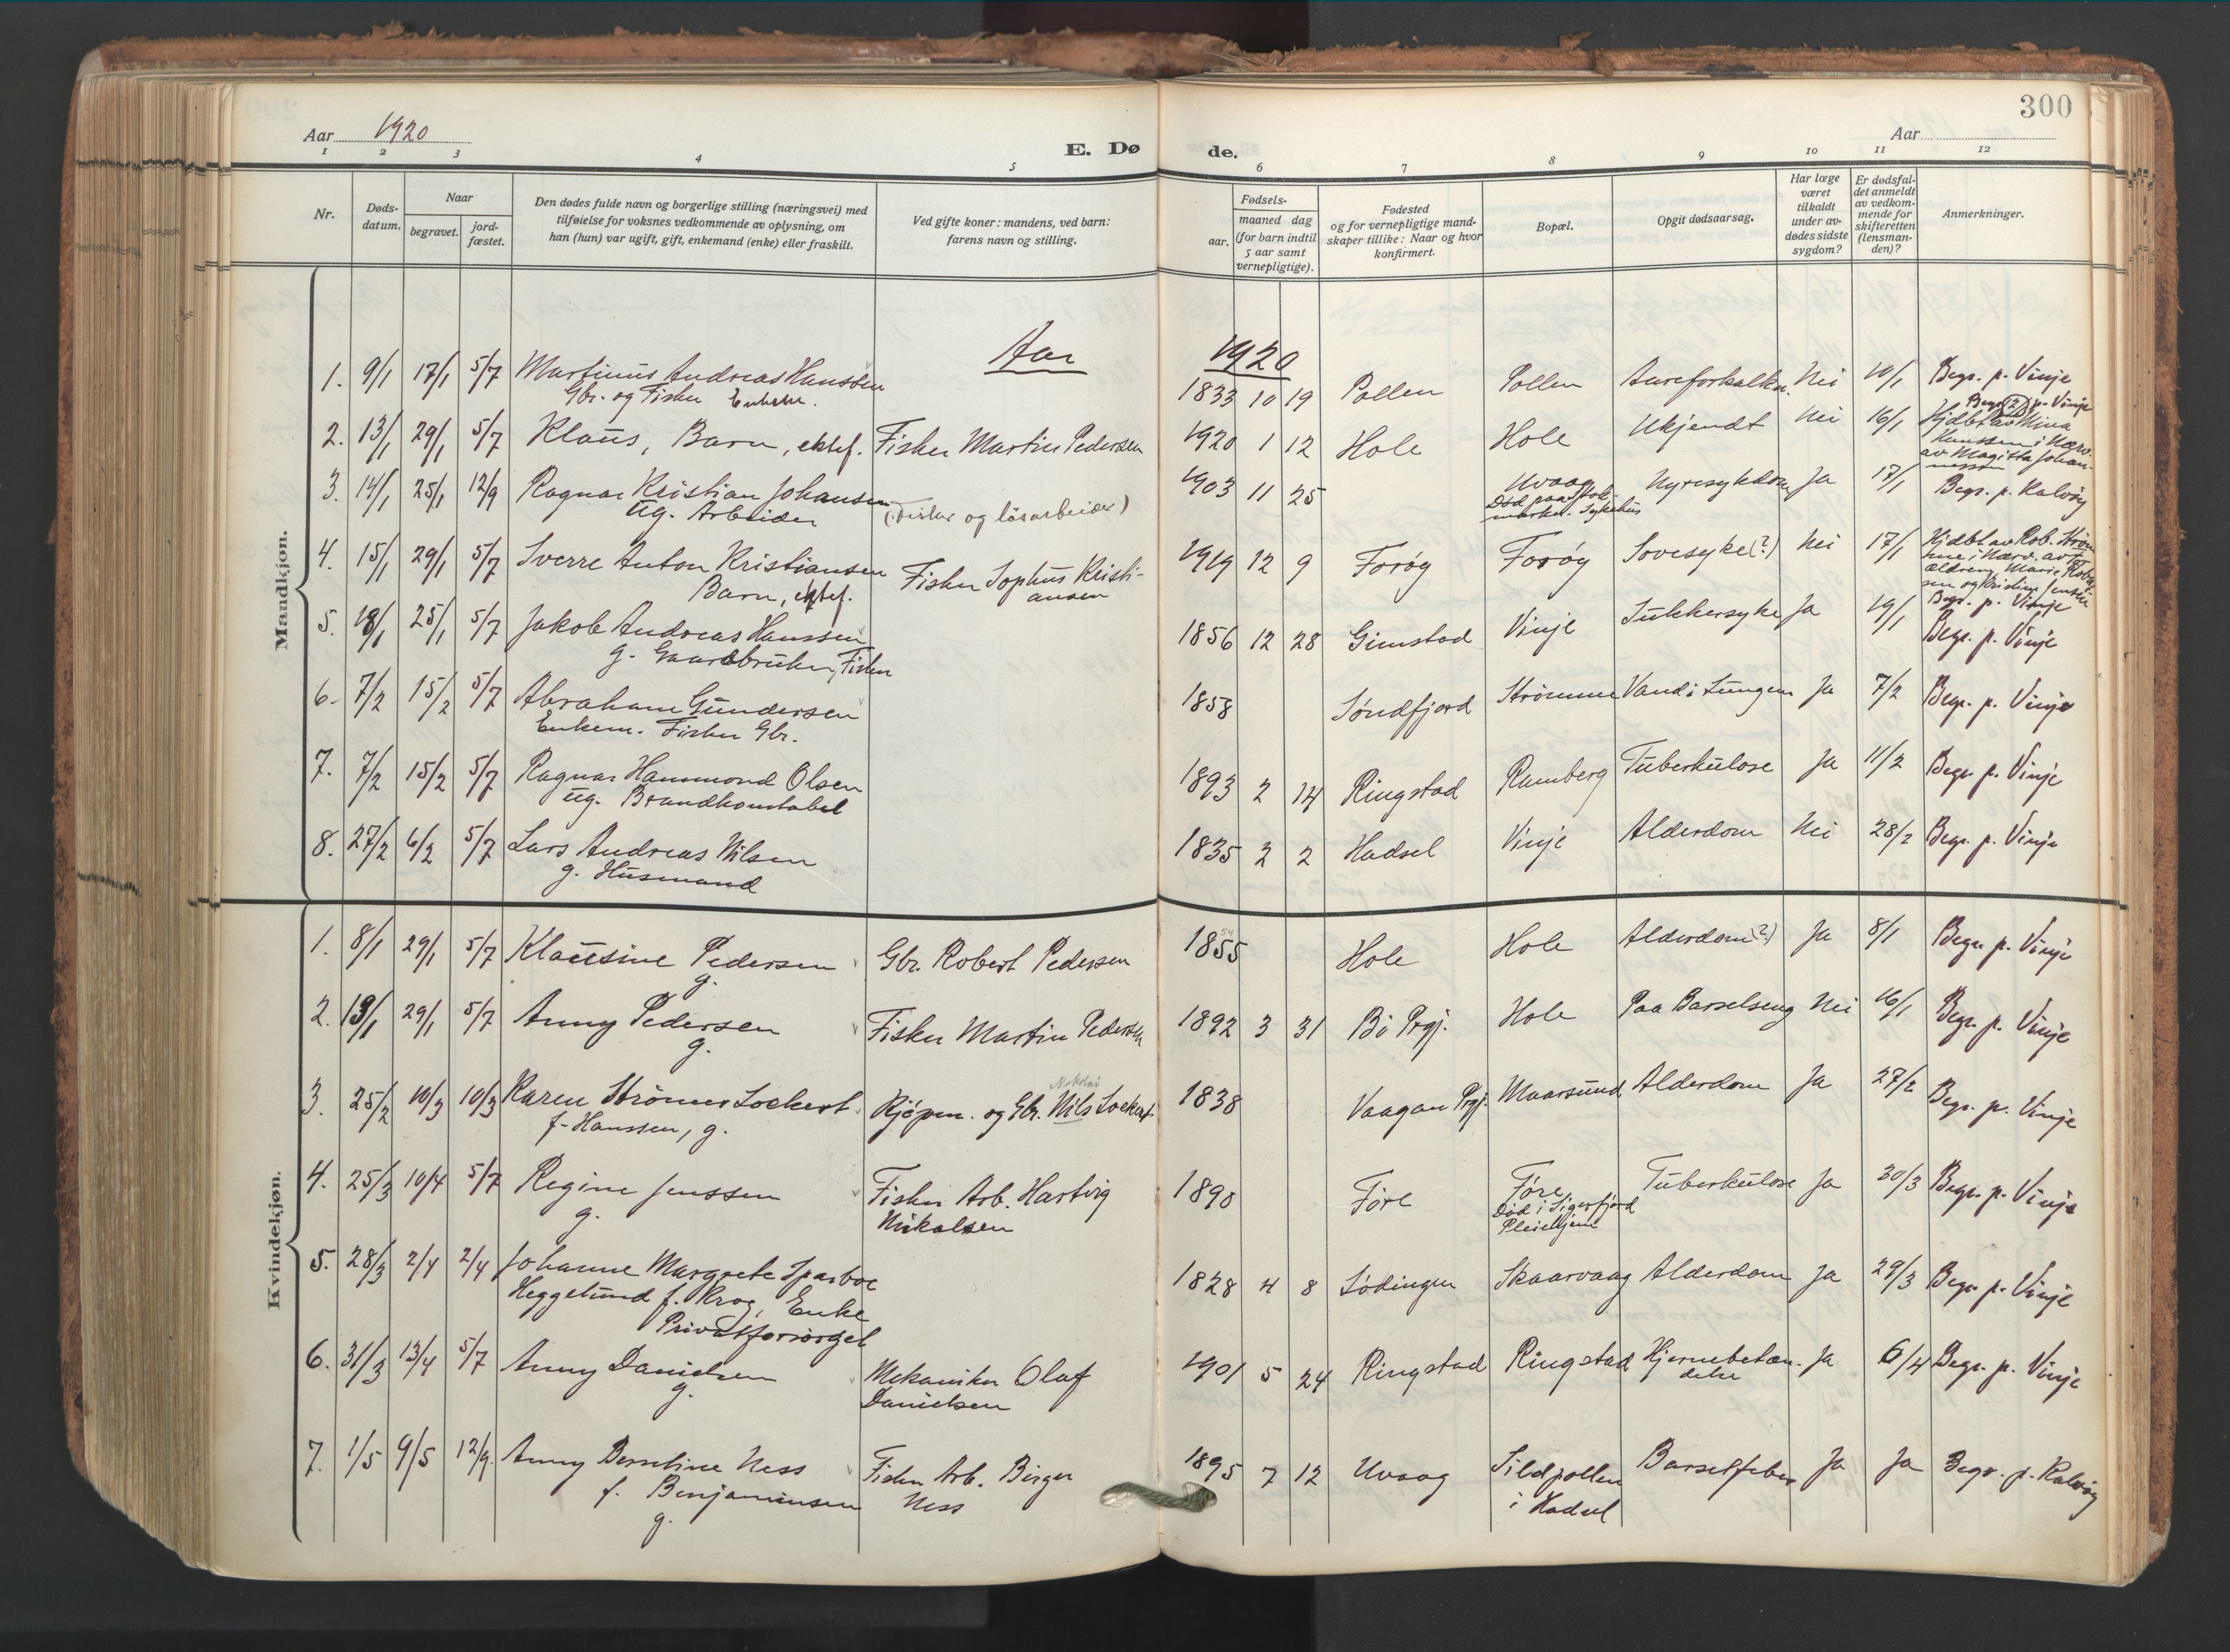 300
Aar 1920
E. Dø
de.
Aar
1 2 3 4 5
6 7 8 9 10 11 12
Nr.
Døds-
datum.
Naar
begravet.
jord-
fæstet.
Den dødes fulde navn og borgerlige stilling (næringsvei) med
tilføielse for voksnes vedkommende av oplysning, om
han (hun) var ugift, gift, enkemand (enke) eller fraskilt.
Ved gifte koner: mandens, ved barn:
farens navn og stilling.
Fødsels-
aar.
maaned dag
(for barn indtil
5 aar samt
vernepligtige).
Fødested
og for vernepligtige mand-
skaper tillike: Naar og hvor
konfirmert.
Bopæl.
Opgit dødsaarsag.
Har læge
været
tilkaldt
under av-
dødes sidste
sygdom?
Er dødsfal-
det anmeldt
av vedkom-
mende for
skifteretten
(lensman-
den)?
Anmerkninger.
Aar 1920
Mandkjøn.
1. 9/1 17/1 5/7 Martinus Andreas Hanssen
Gbr. og Fisker Enkem.
1833 10 19 Pollen Pollen Aareforkalkn. Nei 10/1 Begr. p. Vinje
2. 13/1 29/1 5/7 Klaus, Barn, ektef. Fisker Martin Pedersen
1920 1 12 Hole Hole Ukjendt Nei 16/1 Begr. (2) p. Vinje
Hjdbt av Mina
Hanssen i Nærv.
av Magitta Johan-
nessen
3. 14/1 25/1 12/9 Ragnar Kristian Johansen
Ug. Arbeider (Fisker og løsarbeider)
1903 11 25 Uvaag
Død paa Stok-
markn. Sykehus
Nyresykdom Ja 17/1 Begr. p. Kalvøy
4. 15/1 29/1 5/7 Sverre Anton Kristiansen
Barn, ektef.
Fisker Sophus Kristi-
ansen
1919 12 9 Forøy Forøy Sovesyke(?) Nei 17/1 Hjdbt. av Rob. Strøm-
me i Nærv. av F
ældrene, Marie
sen og Kristine Jensen
Begr. p. Vinje
5. 18/1 25/1 5/7 Jakob Andreas Hanssen
g. Gaardbruker, Fisker
1856 12 28 Gimstad Vinje Sukkersyke Ja 19/1 Begr. p. Vinje
6. 7/2 15/2 5/7 Abraham Gundersen
Enkem. Fisker Gbr.
1858 Søndfjord Strømme Vand i Lungen Ja 7/2 Begr. p. Vinje
7. 7/2 15/2 5/7 Ragnar Hammond Olsen
Ug. Brandkonstabel
1893 2 14 Ringstad Ramberg Tuberkulose Ja 11/2 Begr. p. Vinje
8. 27/2 6/2 5/7 Lars Andreas Nilsen
g. Husmand
1835 2 2 Hadsel Vinje Alderdom Nei 28/2 Begr. p. Vinje
Kvindekjøn.
1. 8/1 29/1 5/7 Klausine Pedersen
g.
Gbr. Robert Pedersen
1855 Hole Hole Alderdom(?) Ja 8/1 Begr. p. Vinje
2. 13/1 29/1 5/7 Anny Pedersen
g.
Fisker Martin Pedersen
1892 3 31 Bø Prgj. Hole Paa Barselseng Nei 16/1 Begr. p. Vinje
3. 25/2 10/3 10/3 Karen Strömer Lockert
f. Hanssen, g.
Nikolai
Kjøpm. og Gbr. Nils Lockert
1838 Vaagan Prgj. Maarsund Alderdom Ja 27/2 Begr. p. Vinje
4. 25/3 10/4 5/7 Regine Jenssen
g.
Fisker Arb. Hartvig
Nikalsen
1890 Føre Føre
Død i Sigerfjord
Pleiehjem
Tuberkulose Ja 30/3 Begr. p. Vinje
5. 28/3 2/4 2/4 Johanne Margrete Sparboe
Heggelund f. Krog, Enke
Privatforsørget
1828 4 8 Lødingen Skaarvaag Alderdom Ja 29/3 Begr. p. Vinje
6. 31/3 13/4 5/7 Anny Danielsen
g.
Mekaniker Olaf
Danielsen
1901 5 24 Ringstad Ringstad Hjernebetæn-
delse
Ja 6/4 Begr. p. Vinje
7. 1/5 9/5 12/9 Anny Berntine Ness
f. Benjaminsen
g.
Fisker Arb. Birger
Ness
1895 7 12 Uvaag Sildpollen
i Hadsel
Barselfeber Ja Ja Begr. p. Kalvøy